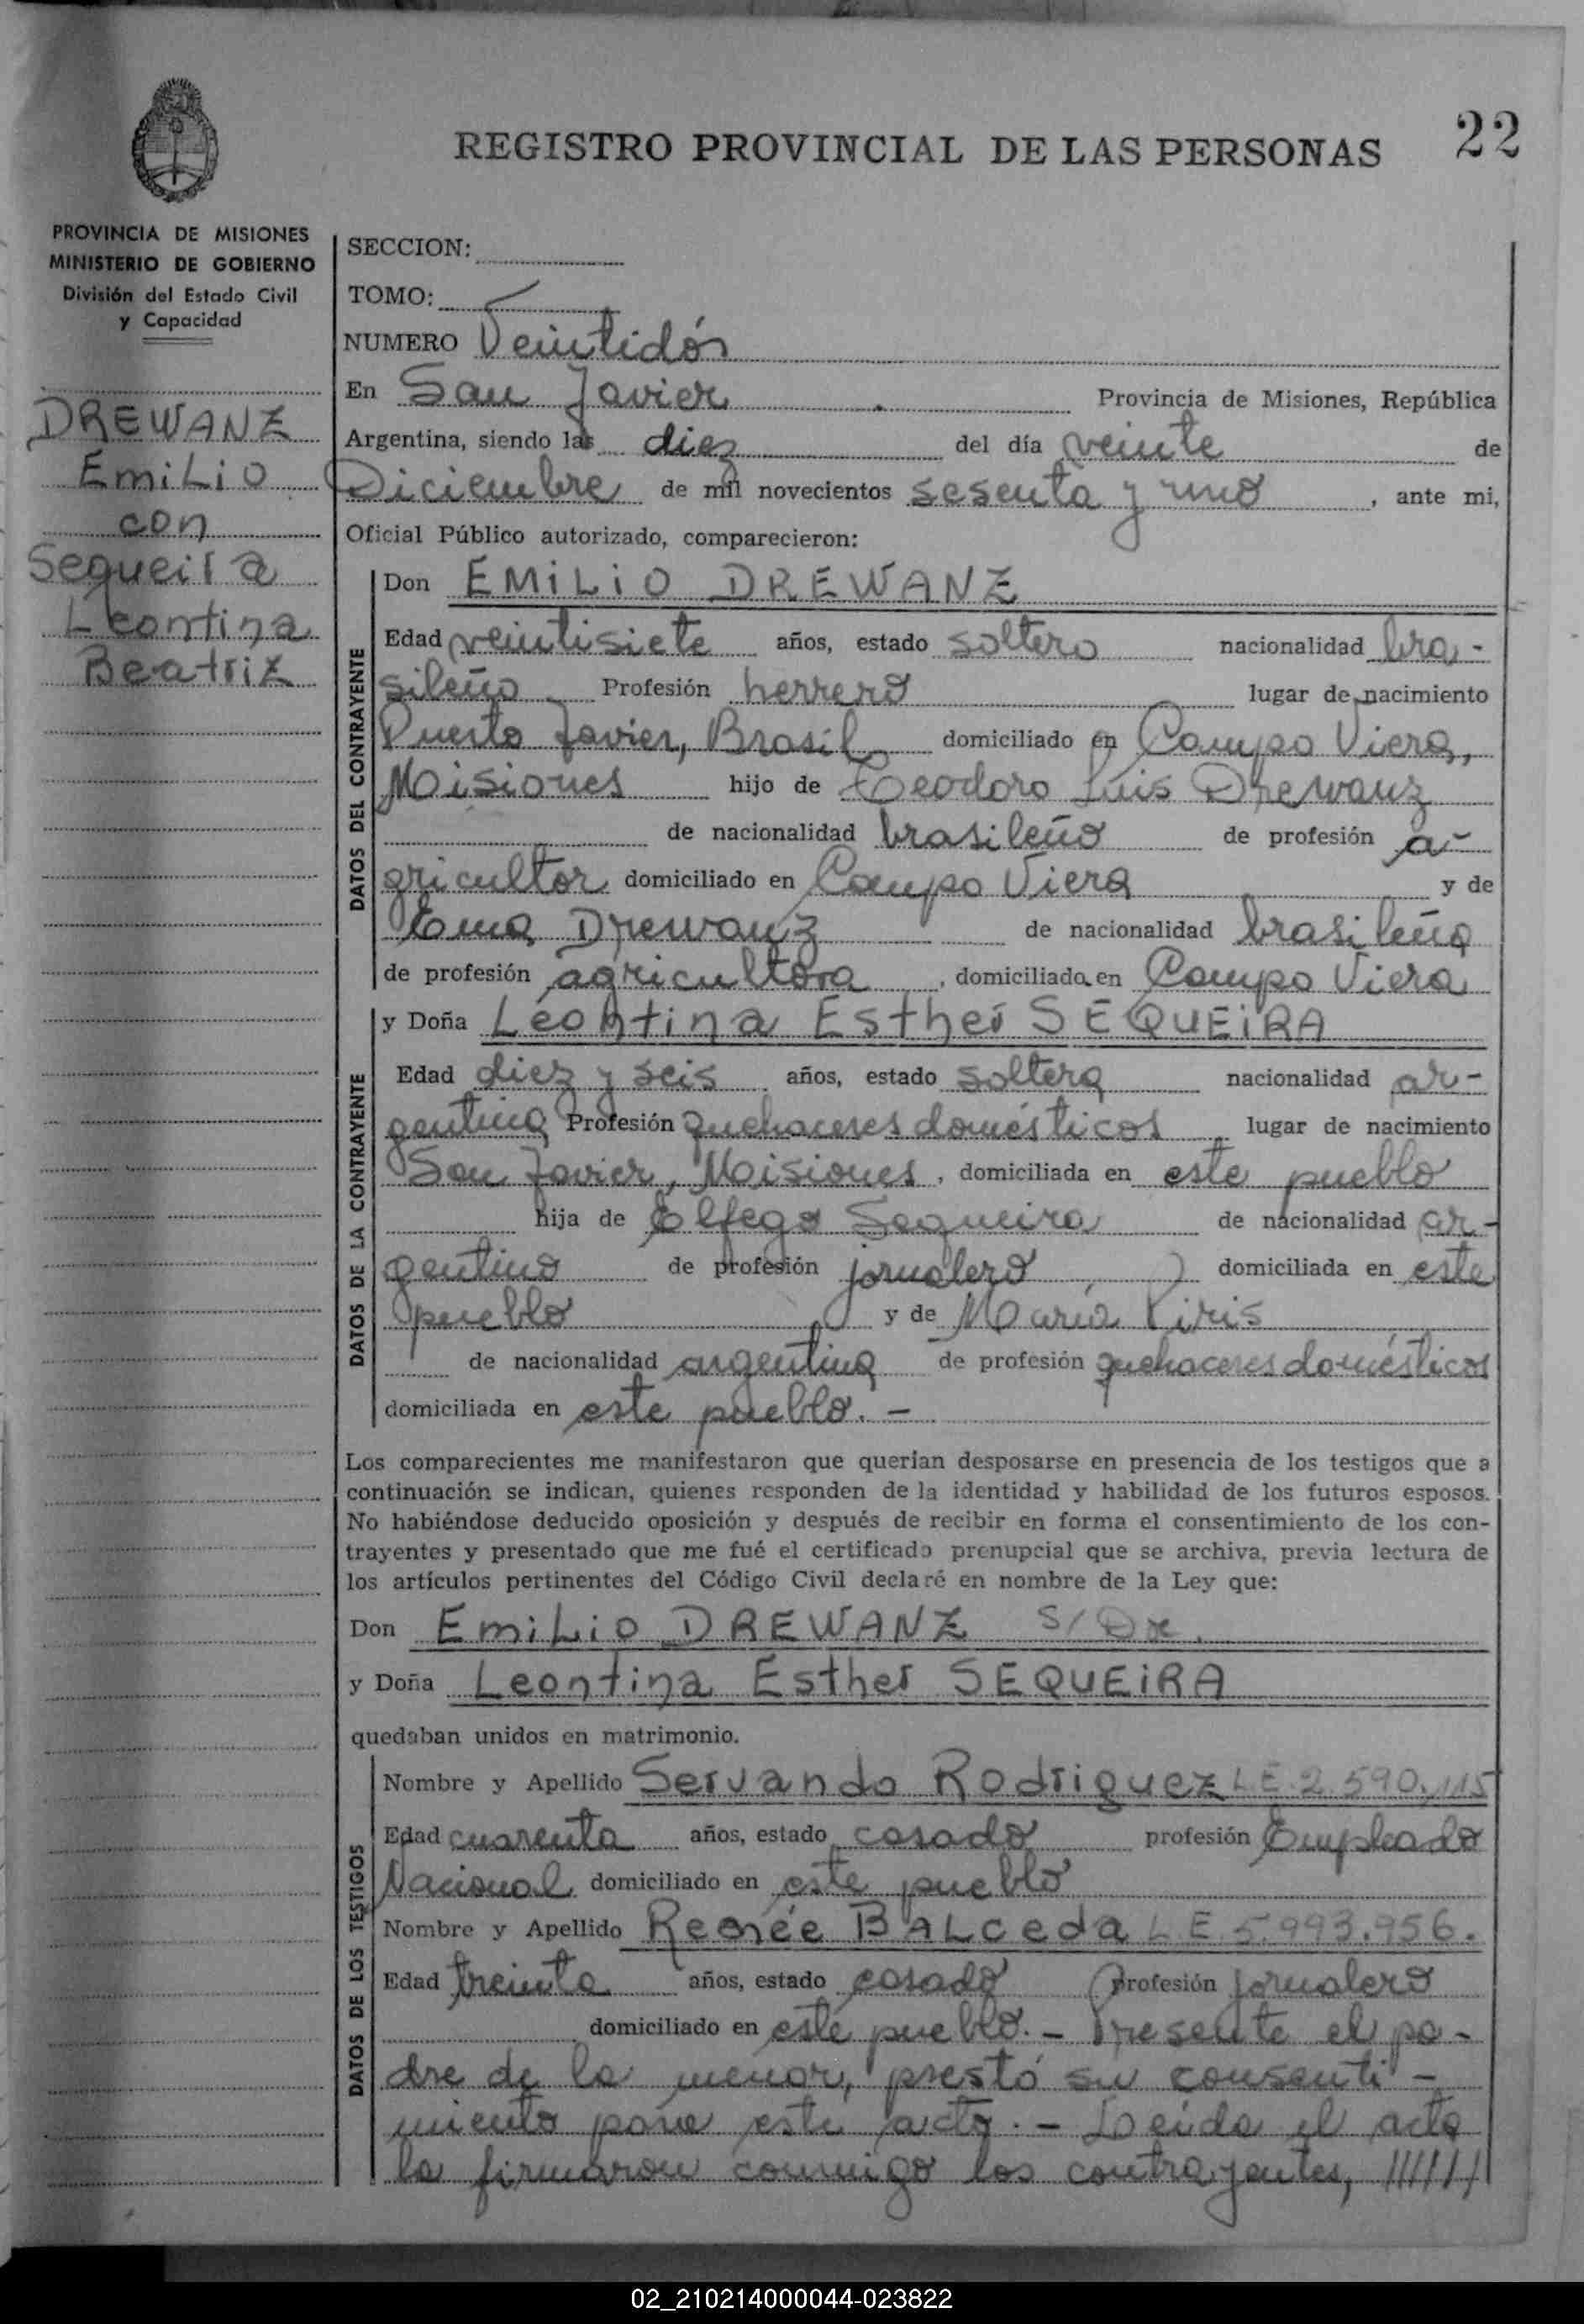 REGISTRO PROVINCIAL DE LAS PERSONAS 22
PROVINCIA DE MISIONES
MINISTERIO DE GOBIERNO
División del Estado Civil
y Capacidad
DREWANZ
Emilio
con
Sequeira
Leontina
Beatriz
SECCION:
TOMO:
NUMERO Veintidós
En San Javier Provincia de Misiones, República
Argentina, siendo las diez del día veinte de
Diciembre de mil novecientos sesenta y uno, ante mi,
Oficial Público autorizado, comparecieron:
DATOS DEL CONTRAYENTE
Don EMILIO DREWANZ
Edad veintisiete años, estado soltero nacionalidad bra-
sileño Profesión herrero lugar de nacimiento
Puerto Javier, Brasil domiciliado en Campo Viera,
Misiones hijo de Teodoro Luis Drewanz
de nacionalidad brasileño de profesión a-
gricultor domiciliado en Campo Viera y de
Ema Drewanz de nacionalidad brasileña
de profesión agricultora, domiciliada en Campo Viera
DATOS DE LA CONTRAYENTE
y Doña Leontina Esther SEQUEIRA
Edad diez y seis años, estado soltera nacionalidad ar-
gentina Profesión quehaceres domésticos lugar de nacimiento
San Javier, Misiones, domiciliada en este pueblo
hija de Elfego Sequeira de nacionalidad ar-
gentino de profesión jornalero domiciliada en este
pueblo y de María Piris
de nacionalidad argentina de profesión quehaceres domésticos
domiciliada en este pueblo. -
Los comparecientes me manifestaron que querían desposarse en presencia de los testigos que a
continuación se indican, quienes responden de la identidad y habilidad de los futuros esposos.
No habiéndose deducido oposición y después de recibir en forma el consentimiento de los con-
trayentes y presentado que me fué el certificado prenupcial que se archiva, previa lectura de
los artículos pertinentes del Código Civil declaré en nombre de la Ley que:
Don Emilio DREWANZ
y Doña Leontina Esther SEQUEIRA
quedaban unidos en matrimonio.
DATOS DE LOS TESTIGOS
Nombre y Apellido Servando Rodriguez L.E. 2.590.115
Edad cuarenta años, estado casado profesión Empleado
Nacional domiciliado en este pueblo
Nombre y Apellido Renée BALceda L E 5.993.956.
Edad treinta años, estado casado profesión jornalero
domiciliado en este pueblo. - Presente el pa-
dre de la menor, prestó su consenti-
miento para este acto. - Leída el acta
la firmaron conmigo los contrayentes, //////
02_210214000044-023822